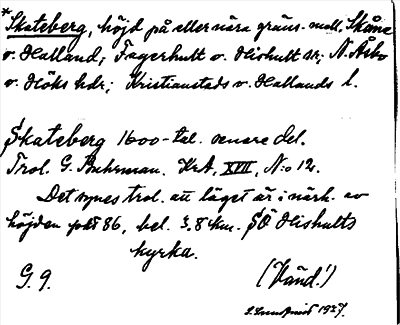 *Skateberg, höjd på eller nära gräns mell. Skåne
o. Halland; Fagerhult o. Hishult sr; N. Åsbo
o. Höks hdr; Kristianstads o. Hallands l.
Skateberg 1600-tal. senare del.
Trol. G. Buhrman. KrA, XVII, N:o 12.
Det synes trol. att läget är i närh. av
höjden pkt 86, bel. 3,8 km. SÖ Hishults
kyrka.
G. 9. (Vänd!)
1937.